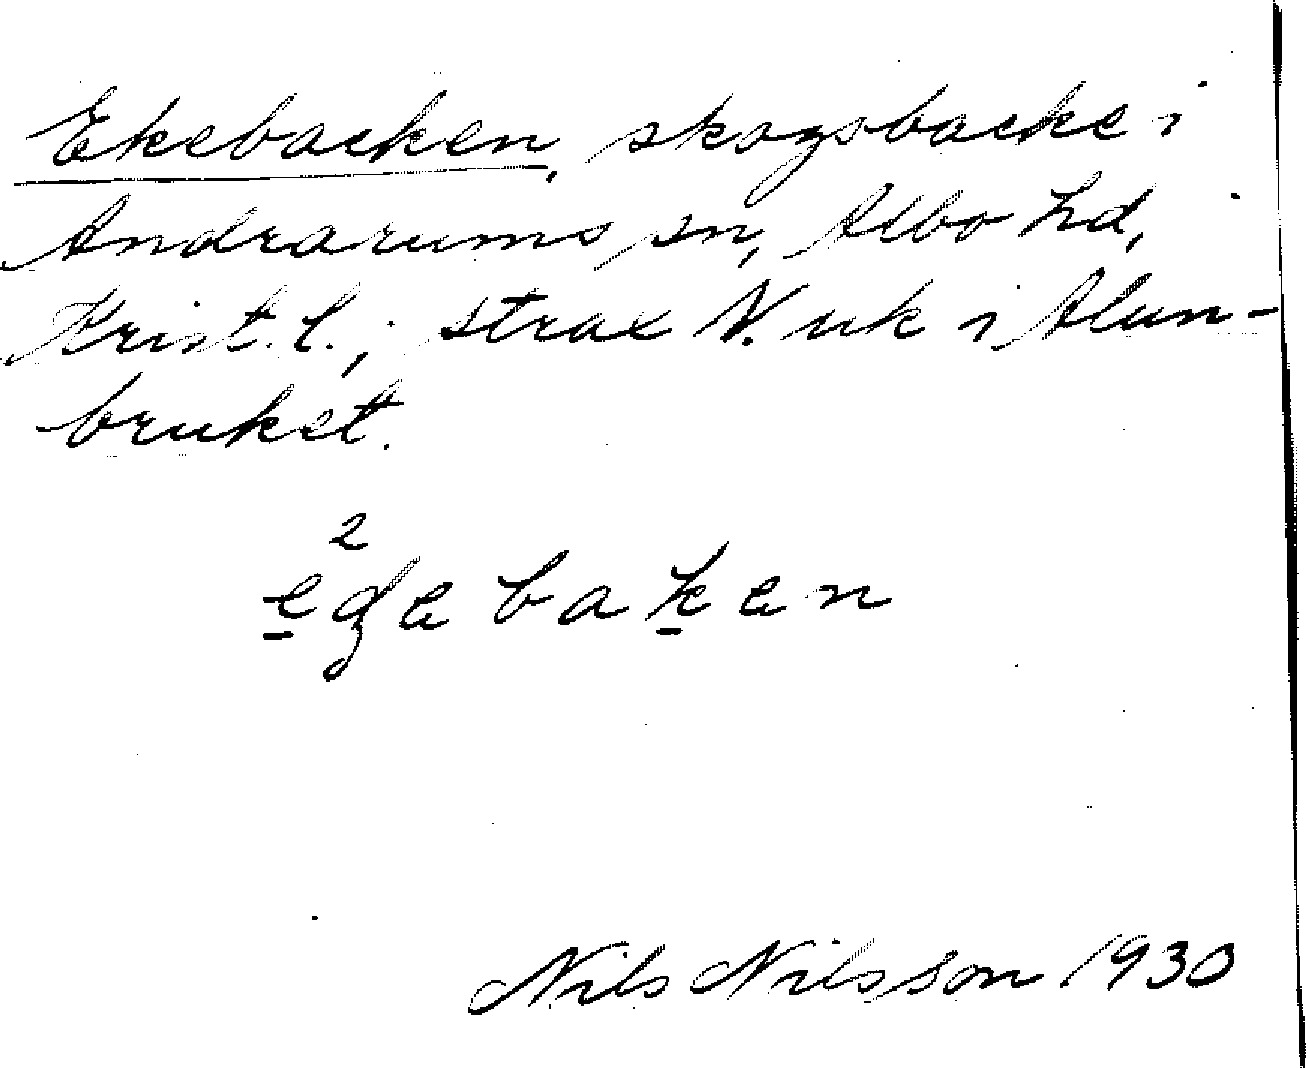 Ekebacken, skogsbacke i
Andrarums sn, Albo hd,
Krist. l.; strax N. uk i Alun-
bruket.
2
egebaken
Nils Nilsson 1930